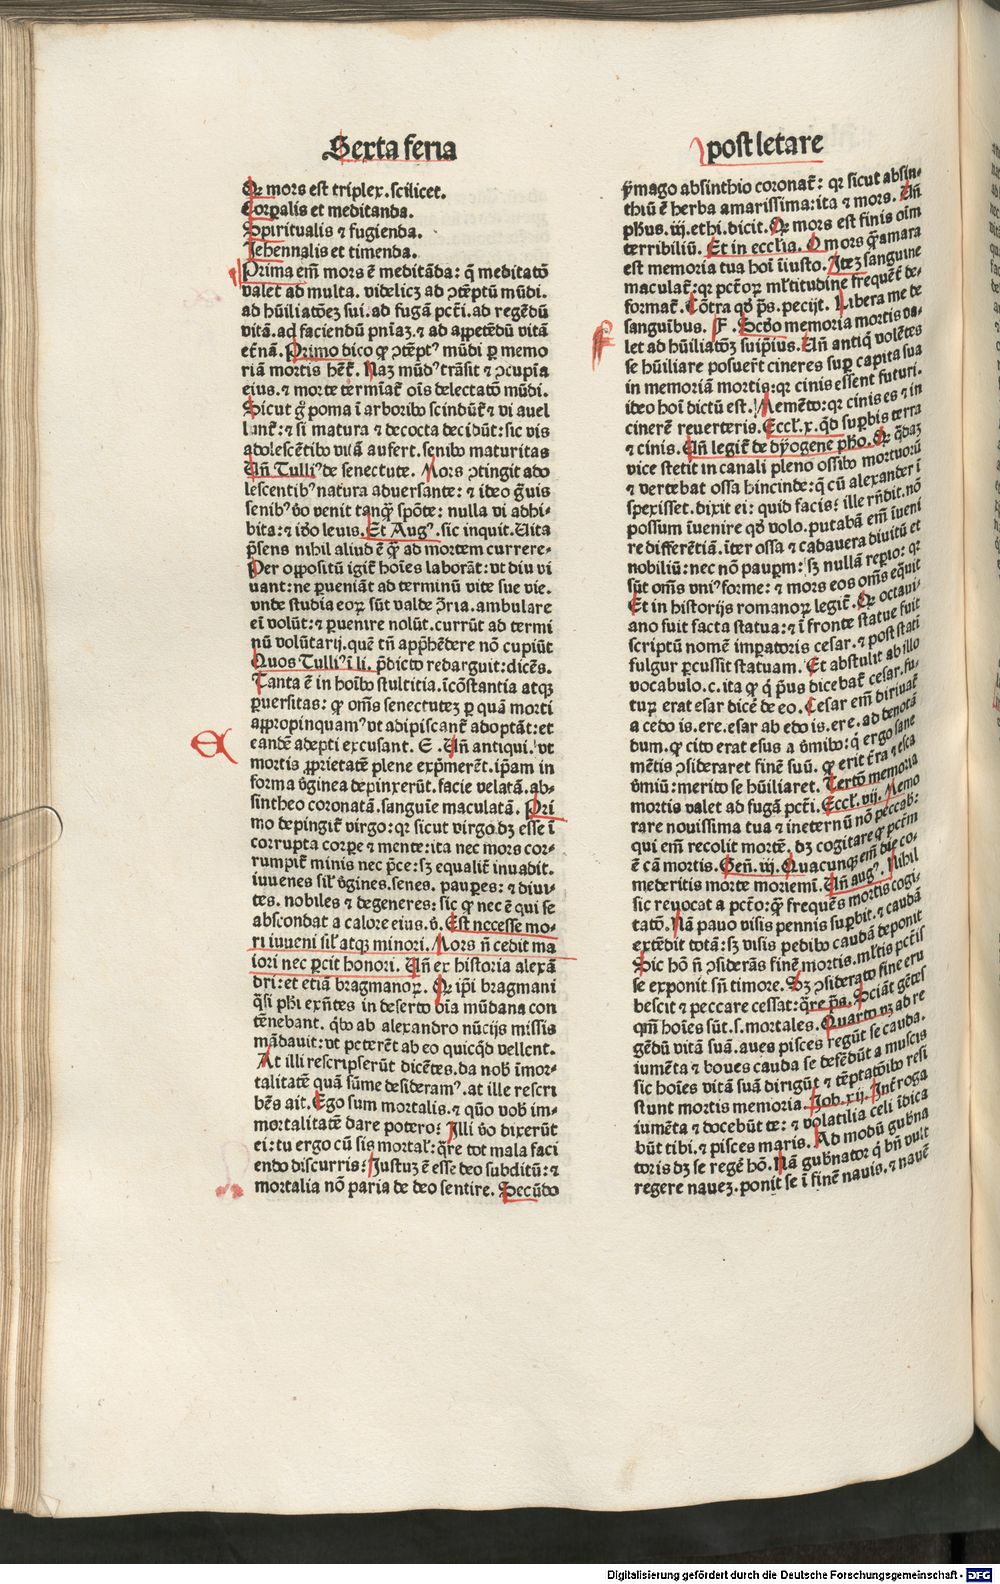 Sexta feria
post letare
Qr mors est triplex. scilicet.
Corꝑalis et meditanda.
Spiritualis ⁊ fugienda.
Jehennalis et timenda.
Prima em̄ mors ē meditāda: q̄ meditatō
valet ad multa. videlicꝫ ad ↄtēptū mūdi.
ad hūiliatōeꝫ sui. ad fugā pctī. ad regēdū
vitā. ad faciendū pniaꝫ. ⁊ ad appetēdū vitā
et̄nā. Primo dico ꝙ ↄtēptꝰ mūdi ꝑ memo
riā mortis hēt̄. Naꝫ mūdꝰ trāsit ⁊ ↄcupia
eius. ⁊ morte termīat̄ oīs delectatō mūdi.
Sicut gͦ poma ī arboribꝰ scindūt̄ ⁊ vi auel
lunt̄: ⁊ si matura ⁊ decocta decidūt: sic vis
adolescētibꝰ vitā aufert. senibꝰ maturitas
Un̄ Tulliꝰ de senectute. Mors ↄtingit ado
lescentibꝰ natura aduersante: ⁊ ideo gͣuis
senibꝰ v̄o venit tanqͣ spōte: nulla vi adhi-
bita: ⁊ iō leuis. Et Augꝰ. sic inquit. Uita
p̄sens nihil aliud ē qͣ ad mortem currere-
Per oppositū igit̄ hoīes laborāt: vt diu vi
uant: ne ꝑueniāt ad terminū vite sue vie.
vnde studia eoꝝ sūt valde ↄ̄ria. ambulare
ei volūt: ⁊ ꝑuenire nolūt. currūt ad termi
nū volūtarij. quē tn̄ app̄hēdere nō cupiūt
Quos Tulliꝰ ī li. p̄dicto redarguit: dicēs.
Tanta ē in hoībꝰ stultitia. īcōstantia atqꝫ
ꝑuersitas: ꝙ om̄s senectuteꝫ ꝑ quā morti
appropinquamꝰ vt adipiscant̄ adoptāt: et
eandē adepti excusant. E. Un̄ antiqui. vt
mortis ꝓprietatē plene exp̄merēt. ip̄am in
forma v̄ginea depinxerūt. facie velatā. ab-
sintheo coronatā. sanguīe maculatā. Pri
mo depingit̄ virgo: qꝛ sicut virgo dꝫ esse ī
corrupta corꝑe ⁊ mente: ita nec mors cor-
rumpit̄ minis nec p̄ce: sꝫ equalit̄ inuadit.
iuuenes sil̄ v̄gines. senes. pauꝑes: ⁊ diui-
tes. nobiles ⁊ degeneres: sic ꝙ nec ē qui se
abscondat a calore eius. v̄. Est necesse mo-
ri iuueni sil̄ atqꝫ minori. Mors n̄ cedit ma
iori nec ꝑcit honori. Un̄ ex historia alexā
dri: et etiā bragmanoꝝ. Qꝛ ip̄i bragmani
qͣsi ph̄i exn̄tes in deserto oīa mūdana con
tēnebant. qͥbꝰ ab alexandro nūcijs missis
mādauit: vt peterēt ab eo quicqͥd vellent.
At illi rescripserūt dicētes. da nob̄ īmor-
talitatē quā sūme desideramꝰ. at ille rescri
bēs ait. Ego sum mortalis. ⁊ qūo vob̄ im-
mortalitatē dare potero? Illi v̄o dixerūt
ei: tu ergo cū sis mortal̄: qͣre tot mala faci
endo discurris? Justuꝫ ē esse deo subditū: ⁊
mortalia nō paria de deo sentire. Secūdo
ȳmago absinthio coronat̄: qꝛ sicut absin-
thiū ē herba amarissima: ita ⁊ mors. Un̄
ph̄us. iij. ethi. dicit. Qꝛ mors est finis oīm
terribiliū. Et in eccl̄ia. O mors qͣ amara
est memoria tua hoī īiusto. Iteꝫ sanguine
maculat̄: qꝛ pctōꝝ ml̄titudine frequēt̄ de-
format̄. Cōtra qd̄ p̄s. petijt. Libera me de
sanguībus. F. Scd̄o memoria mortis va-
let ad hūiliatōꝫ suip̄ius. Un̄ antiqͥ volētes
se hūiliare posuer̄t cineres suꝑ capita sua
in memoriā mortis: qꝛ cinis essent futuri.
ideo hoī dictū est. Memēto: qꝛ cinis es ⁊ in
cinerē reuerteris. Eccl̄. x. qͥd suꝑbis terra
⁊ cinis. Un̄ legit̄ de dȳogene ph̄o. Qꝛ qͣdaꝫ
vice stetit in canali pleno ossibꝰ mortuoꝝ
⁊ vertebat ossa hincinde: qͣ cū alexander ī
spexisset. dixit ei: quid facis? ille rn̄dit. nō
possum īuenire qd̄ volo. putabā em̄ īueni
re differētiā. īter ossa ⁊ cadauera diuitū et
nobiliū: nec nō pauꝑm: sꝫ nullā reꝑio: qꝛ
sūt om̄s vniꝰ forme: ⁊ mors eos om̄s eq̄uit
Et in historijs romanoꝝ legit̄. Qꝛ octaui-
ano fuit facta statua: ⁊ ī fronte statue fuit
scriptū nomē imꝑatoris cesar. ⁊ post stati
fulgur ꝑcussit statuam. Et abstulit ab illo
vocabulo. c. ita ꝙ qͥ p̄us dicebat̄ cesar. fu-
tuꝝ erat esar dicē de eo. Cesar em̄ diriuat̄
a cedo is. ere. esar ab edo is. ere. ad denotā
dum. ꝙ cito erat esus a v̄mibꝰ: qͥ ergo sane
mētis ↄsideraret finē suū. ꝙ erit t̄ra ⁊ esca
v̄miū: merito se hūiliaret. Tertō memoria
mortis valet ad fugā pctī. Eccl̄. vij. Memo
rare nouissima tua ⁊ ineternū nō peccab̄:
qui em̄ recolit mortē. dꝫ cogitare ꝙ pctm̄
ē cā mortis. Gen̄. iij. Quacunqꝫ em̄ die co-
mederitis morte moriemī. Un̄ augꝰ. Nihil
sic reuocat a pctō: qͣ frequēs mortis cogi-
tatō. Nā pauo visis pennis suꝑbit. ⁊ caudā
extēdit totā: sꝫ visis pedibꝰ caudā deponit
Sic hō n̄ ↄsiderās finē mortis. ml̄tis pctīs
se exponit sn̄ timore. Sꝫ ↄsiderato fine eru
bescit ⁊ peccare cessat: qͣre p̄s. Sciāt gētes
qm̄ hoīes sūt. s. mortales. Quarto vꝫ ad re
gēdū vitā suā. aues pisces regūt se cauda.
iumēta ⁊ boues cauda se defēdūt a muscis
sic hoīes vitā suā dirigūt ⁊ tēptatōibꝰ resi
stunt mortis memoria. Job. xij. Int̄roga
iumēta ⁊ docebūt te: ⁊ volatilia celi īdica
būt tibi. ⁊ pisces maris. Ad modū gub̄na
toris dꝫ se regē hō. Nā gub̄nator qͥ bn̄ vult
regere naueꝫ. ponit se ī finē nauis. ⁊ nauē
Digitalisierung gefördert durch die Deutsche Forschungsgemeinschaft - DFG